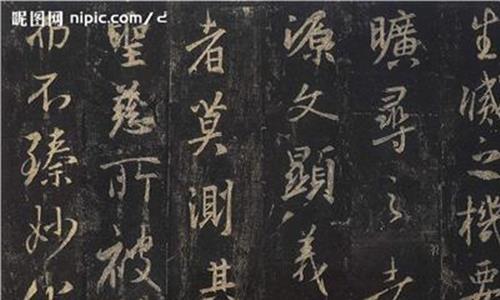 昵图网 nipic.com/c
生滅之機要
曠尋之者
源文顯義
者莫測其
聖慈所被
而不臻妙化